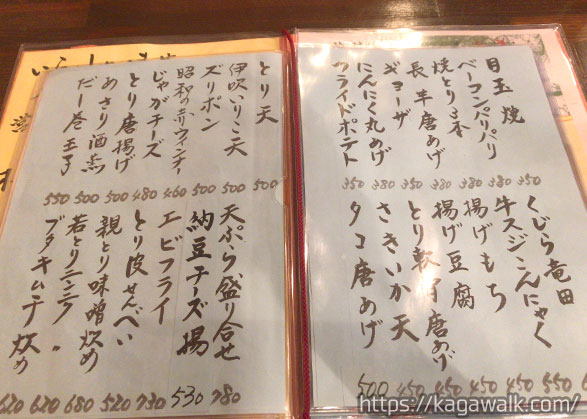 目玉焼 350
ベーコンパリパリ 380
焼とり3本 380
長芋唐あげ 380
ギョーザ 350
にんにく丸あげ 380
フライドポテト 350
くじら竜田
牛スジこんにゃく 550
揚げもち 450
揚げ豆腐 450
とり軟骨唐あげ 450
さきいか天 450
タコ唐あげ 500
とり天 500
伊吹いりこ天 500
ズリポン 500
昭和の赤ウィンナー 460
じゃがチーズ 480
とり唐揚げ 500
あさり酒蒸 500
だし巻玉子 550
天ぷら盛り合せ 780
納豆チーズ揚 530
エビフライ 730
とり皮せんべい 520
親とり味噌炒め 680
若とりニンニク 〃 620
ブタキムチ炒め 620
https://kagawalk.com/